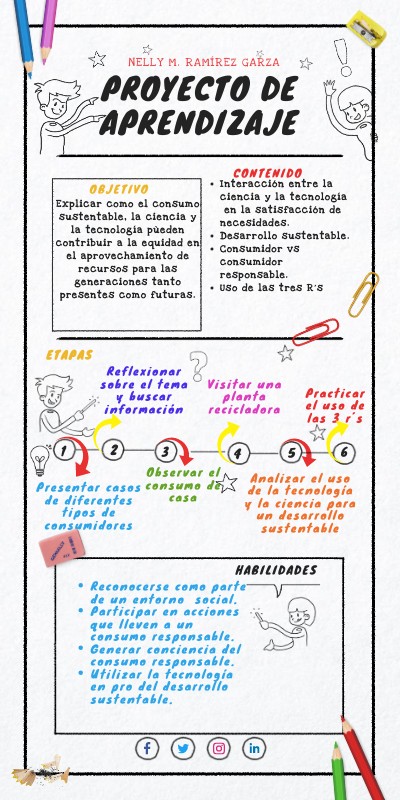 NELLY M. RAMÍREZ GARZA
PROYECTO DE
APRENDIZAJE
OBJETIVO
Explicar como el consumo
sustentable, la ciencia y
la tecnología pueden
contribuir a la equidad en
el aprovechamiento de
recursos para las
generaciones tanto
presentes como futuras.
CONTENIDO
• Interacción entre la
ciencia y la tecnología
en la satisfacción de
necesidades.
• Desarrollo sustentable.
• Consumidor vs
consumidor
responsable.
• Uso de las tres R's
ETAPAS
Reflexionar
sobre el tema
y buscar
información
Visitar una
planta
recicladora
Practicar
el uso de
las 3 r's
1 2 3 4 5 6
Presentar casos
de diferentes
tipos de
consumidores
Observar el
consumo de
casa
Analizar el uso
de la tecnología
y la ciencia para
un desarrollo
sustentable
HABILIDADES
• Reconocerse como parte
de un entorno social.
• Participar en acciones
que lleven a un
consumo responsable.
• Generar conciencia del
consumo responsable.
• Utilizar la tecnología
en pro del desarrollo
sustentable.